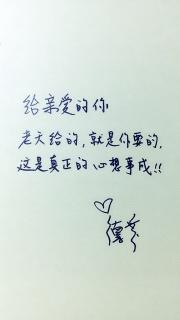 给亲爱的你
老天给的，就是你要的，
这是真正的心想事成!!